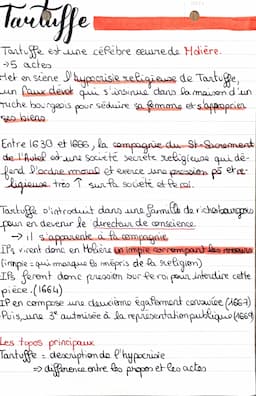 Tartuffe
Tartuffe est une célèbre œuvre de Molière.
→ 5 actes
Met en scène l'hypocrisie religieuse de Tartuffe,
un faux dévot qui s'insinue dans la maison d'un
riche bourgeois pour séduire sa femme et s'approprier
ses biens
Entre 1630 et 1666, la compagnie du St-Sacrement
de l'Autel est une société secrète religieuse qui dé-
fend l'ordre moral et exerce une pression pô et re-
ligieuse très ↑ sur la société et le roi.
Tartuffe s'introduit dans une famille de riches bourgeois
pour en devenir le directeur de conscience.
→ il s'apparente à la compagnie
IPs virent donc en Molière un impie corrompant les mœurs
(impie : qui marque le mépris de la religion)
→ Ils feront donc pression sur le roi pour interdire cette
pièce. (1664)
IP en compose une deuxième également censurée (1667)
Puis, une 3e autorisée à la représentation publique (1669)
Les topos principaux
Tartuffe = description de l'hypocrisie
⇒ différence entre les propos et les actes